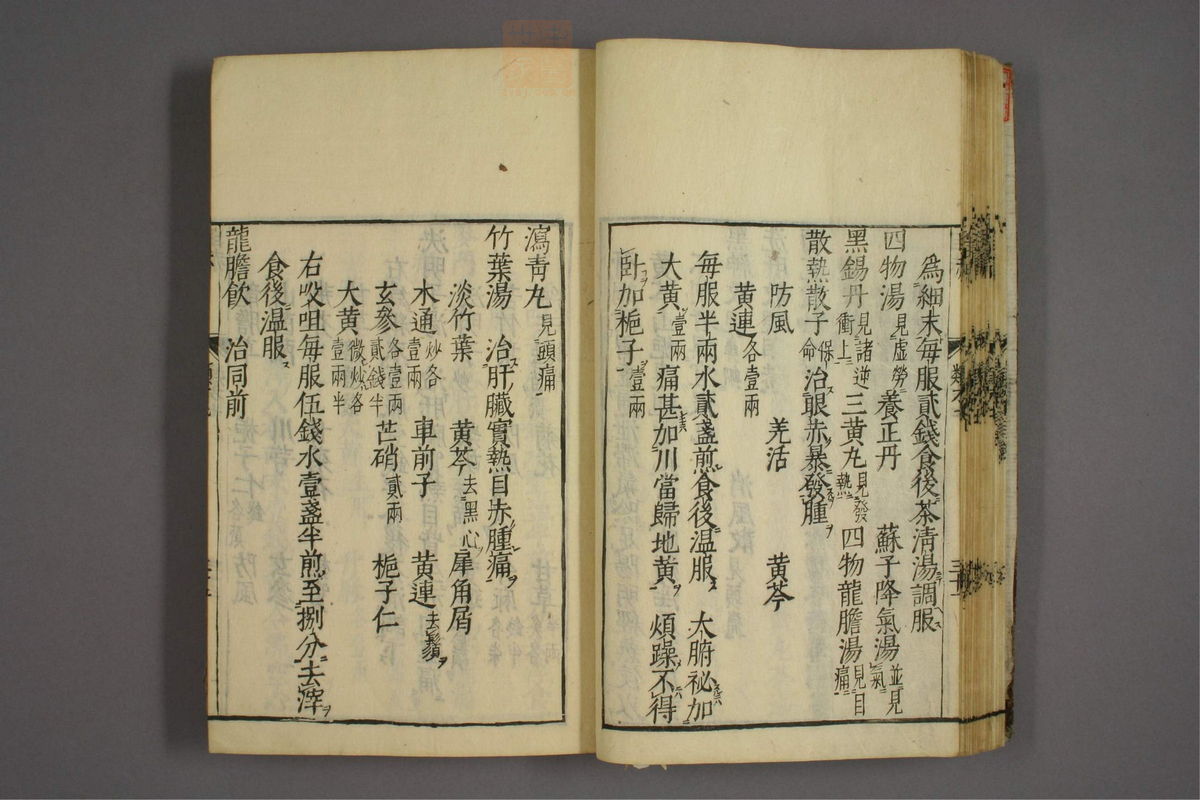 爲細末每服貳錢食後茶清湯調服
四物湯見虛勞養正丹 蘇子降氣湯並見氣
黑錫丹見諸逆衝上三黃丸見發熱四物龍膽湯見目痛
散熱散子保命治眼赤暴發腫
防風 羌活 黃芩
黃連各壹兩
每服半兩水貳盞煎食後温服 大腑祕加
大黃壹兩痛甚加川當歸地黃 煩躁不得
卧加梔子壹兩
瀉青丸見頭痛
竹葉湯 治肝臟實熱目赤腫痛
淡竹葉 黃芩去黑心犀角屑
木通炒各壹兩 車前子 黃連去鬚
玄參各壹兩貳錢半芒硝貳兩 梔子仁
大黃微炒各壹兩半
右㕮咀每服伍錢水壹盞半煎至捌分去滓
食後温服
龍膽飲 治同前